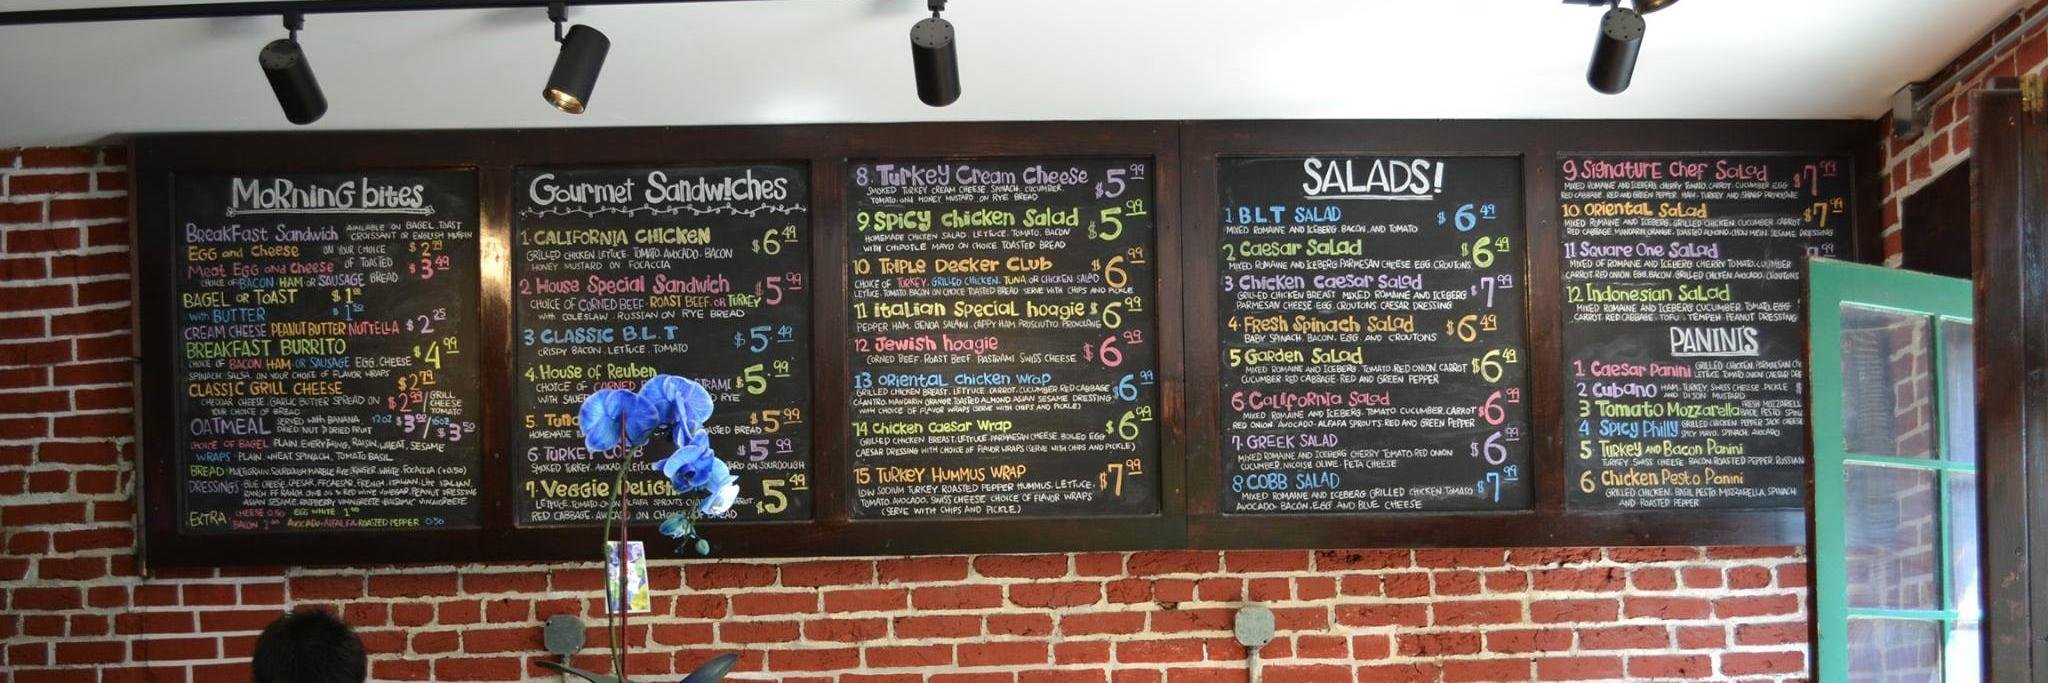 Morning bites
BreakFast Sandwich AVAILABLE ON BAGEL, TOAST
CROISSANT OR ENGLISH MUFFIN
EGG and Cheese ON YOUR CHOICE $2
Meat EGG and Cheese OF TOASTED $3.49
CHOICE of BACON HAM or SAUSAGE BREAD
BAGEL or TOAST $1
with BUTTER $1.50
CREAM CHEESE PEANUT BUTTER NUTTELLA $2.25
BREAKFAST BURRITO $4.99
CHOICE OF BACON, HAM OR SAUSAGE EGG, CHEESE
SPINACH SALSA ON YOUR CHOICE OF FLAVOR WRAPS
CLASSIC GRILL CHEESE $2.79
CHEDDAR CHEESE, GARLIC BUTTER SPREAD ON $2.99 / GRILL CHEESE TOMATO
YOUR CHOICE OF BREAD
OATMEAL SERVED WITH BANANA 12oz $3 / 16oz $3.50
DRIED NUT DRIED FRUIT
CHOICE OF BAGEL PLAIN, EVERYTHING, RAISIN, WHEAT, SESAME
WRAPS PLAIN, WHEAT, SPINACH, TOMATO BASIL
BREAD
DRESSINGS BLUE CHEESE, CAESAR, FRENCH, ITALIAN
EXTRA CHEESE 0.50 EGG WHITE
BACON AVOCADO-ALFALFA-ROASTED PEPPER 0.50
Gourmet Sandwiches
1. CALIFORNIA CHICKEN $6.49
GRILLED CHICKEN LETTUCE TOMATO AVOCADO BACON
HONEY MUSTARD ON FOCACCIA
2 House Special Sandwich $5.99
CHOICE OF CORNED BEEF ROAST BEEF OR TURKEY
WITH COLESLAW RUSSIAN ON RYE BREAD
3 CLASSIC B.L.T $5.49
CRISPY BACON LETTUCE TOMATO
4. House of Reuben $5.99
CHOICE OF CORNED
WITH RYE
5. $5.99
HOMEMADE BREAD
6 TURKEY COBB $5.99
SMOKED TURKEY, ON SOURDOUGH
7. Veggie Delight $5.49
LETTUCE, TOMATO
RED CABBAGE, AVOCADO ON CHOICE OF BREAD
8. Turkey Cream Cheese $5.99
SMOKED TURKEY CREAM CHEESE, SPINACH, CUCUMBER,
TOMATO and HONEY MUSTARD ON RYE BREAD
9. SPICY chicken Salad $5.99
HOMEMADE CHICKEN SALAD, LETTUCE, TOMATO, BACON
WITH CHIPOTLE MAYO ON CHOICE TOASTED BREAD
10. TRIPLE DECKER CLUB $6.99
CHOICE OF TURKEY, GRILLED CHICKEN, TUNA OR CHICKEN SALAD
LETTUCE, TOMATO, BACON ON CHOICE TOASTED BREAD SERVE WITH CHIPS AND PICKLE
11 italian Special hoagie $6.99
PEPPER HAM, GENOA SALAMI, CAPPY HAM PROSCIUTTO PROVOLONE
12 Jewish hoagie $6.99
CORNED BEEF, ROAST BEEF, PASTRAMI SWISS CHEESE
13 Oriental chicken wrap $6.99
GRILLED CHICKEN BREAST, LETTUCE, CARROT, CUCUMBER, RED CABBAGE
CILANTRO MANDARIN ORANGE, TOASTED ALMOND ASIAN SESAME DRESSING
WITH CHOICE OF FLAVOR WRAPS (SERVE WITH CHIPS AND PICKLE)
14 Chicken Caesar Wrap $6.99
GRILLED CHICKEN BREAST, LETTUCE, PARMESAN CHEESE, BOILED EGG
CAESAR DRESSING WITH CHOICE OF FLAVOR WRAPS (SERVE WITH CHIPS AND PICKLE)
15. TURKEY HUMMUS WRAP $7.99
LOW SODIUM TURKEY ROASTED PEPPER HUMMUS, LETTUCE,
TOMATO, AVOCADO, SWISS CHEESE CHOICE OF FLAVOR WRAPS
(SERVE WITH CHIPS AND PICKLE)
SALADS!
1 B.L.T SALAD $6.49
MIXED ROMAINE AND ICEBERG, BACON, AND TOMATO
2 Caesar Salad $6.49
MIXED ROMAINE AND ICEBERG PARMESAN CHEESE EGG CROUTONS
3 Chicken Caesar Salad $7.99
GRILLED CHICKEN BREAST MIXED ROMAINE AND ICEBERG
PARMESAN CHEESE EGG, CROUTONS CAESAR DRESSING
4. Fresh Spinach Salad $6.49
BABY SPINACH, BACON, EGG, AND CROUTONS
5 Garden Salad $6.49
MIXED ROMAINE AND ICEBERG, TOMATO, RED ONION, CARROT
CUCUMBER RED CABBAGE, RED AND GREEN PEPPER
6 California Salad $6.99
MIXED ROMAINE AND ICEBERG, TOMATO CUCUMBER, CARROT
RED ONION, AVOCADO, ALFAFA SPROUTS RED AND GREEN PEPPER
7. GREEK SALAD $6.99
MIXED ROMAINE AND ICEBERG CHERRY TOMATO, RED ONION
CUCUMBER, NICOISE OLIVE, FETA CHEESE
8 COBB SALAD $7.99
MIXED ROMAINE AND ICEBERG GRILLED CHICKEN TOMATO
AVOCADO, BACON, EGG, AND BLUE CHEESE
9. Signature Chef Salad $7.99
MIXED ROMAINE AND ICEBERG CHERRY TOMATO, CARROT, CUCUMBER EGG
RED CABBAGE, RED AND GREEN PEPPER, HAM, TURKEY, AND SHARP PROVOLONE
10 Oriental Salad $7.99
MIXED ROMAINE AND ICEBERG, GRILLED CHICKEN, CUCUMBER, CARROT
RED CABBAGE, MANDARIN ORANGE, TOASTED ALMOND, CHOW MEIN SESAME DRESSING
11 Square One Salad
MIXED OF ROMAINE AND ICEBERG CHERRY TOMATO, CUCUMBER
CARROT, RED ONION, EGG, BACON, GRILLED CHICKEN, AVOCADO, CROUTONS
12 Indonesian Salad
MIXED ROMAINE AND ICEBERG, CUCUMBER, TOMATO, EGG
CARROT, RED CABBAGE, TOFU, TEMPEH PEANUT DRESSING
PANINI'S
1 Caesar Panini GRILLED CHICKEN, PARMESAN
LETTUCE TOMATO ONION
2 Cubano HAM, TURKEY, SWISS CHEESE, PICKLE $
AND DIJON MUSTARD
3 Tomato Mozzarella FRESH MOZZARELLA
PESTO
4 Spicy Philly GRILLED CHICKEN PEPPER JACK CHEESE
SPICY MAYO, SPINACH, AVOCADO
5 Turkey and Bacon Panini
TURKEY, SWISS CHEESE BACON ROASTED PEPPER, RUSSIAN
6 Chicken Pesto Panini
GRILLED CHICKEN, BASIL PESTO, MOZZARELLA, SPINACH
AND ROASTED PEPPER